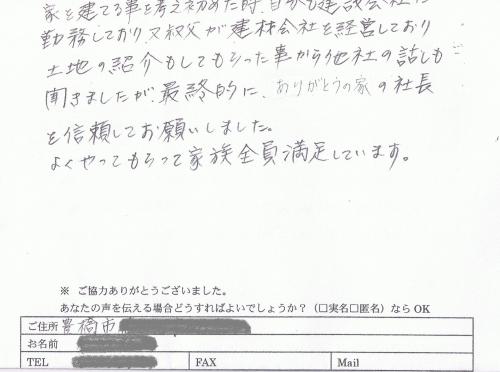 家を建てる事を考え初めた時、自分も建設会社に
勤務しており又叔父が建材会社を経営しており
土地の紹介もしてもらった事から他社の話しも
聞きましたが、最終的に、ありがとうの家の社長
を信頼してお願いしました。
よくやってもらって家族全員満足しています。
※ ご協力ありがとうございました。
あなたの声を伝える場合どうすればよいでしょうか？（□実名□匿名）なら OK
ご住所 豊橋市
お名前
TEL FAX Mail